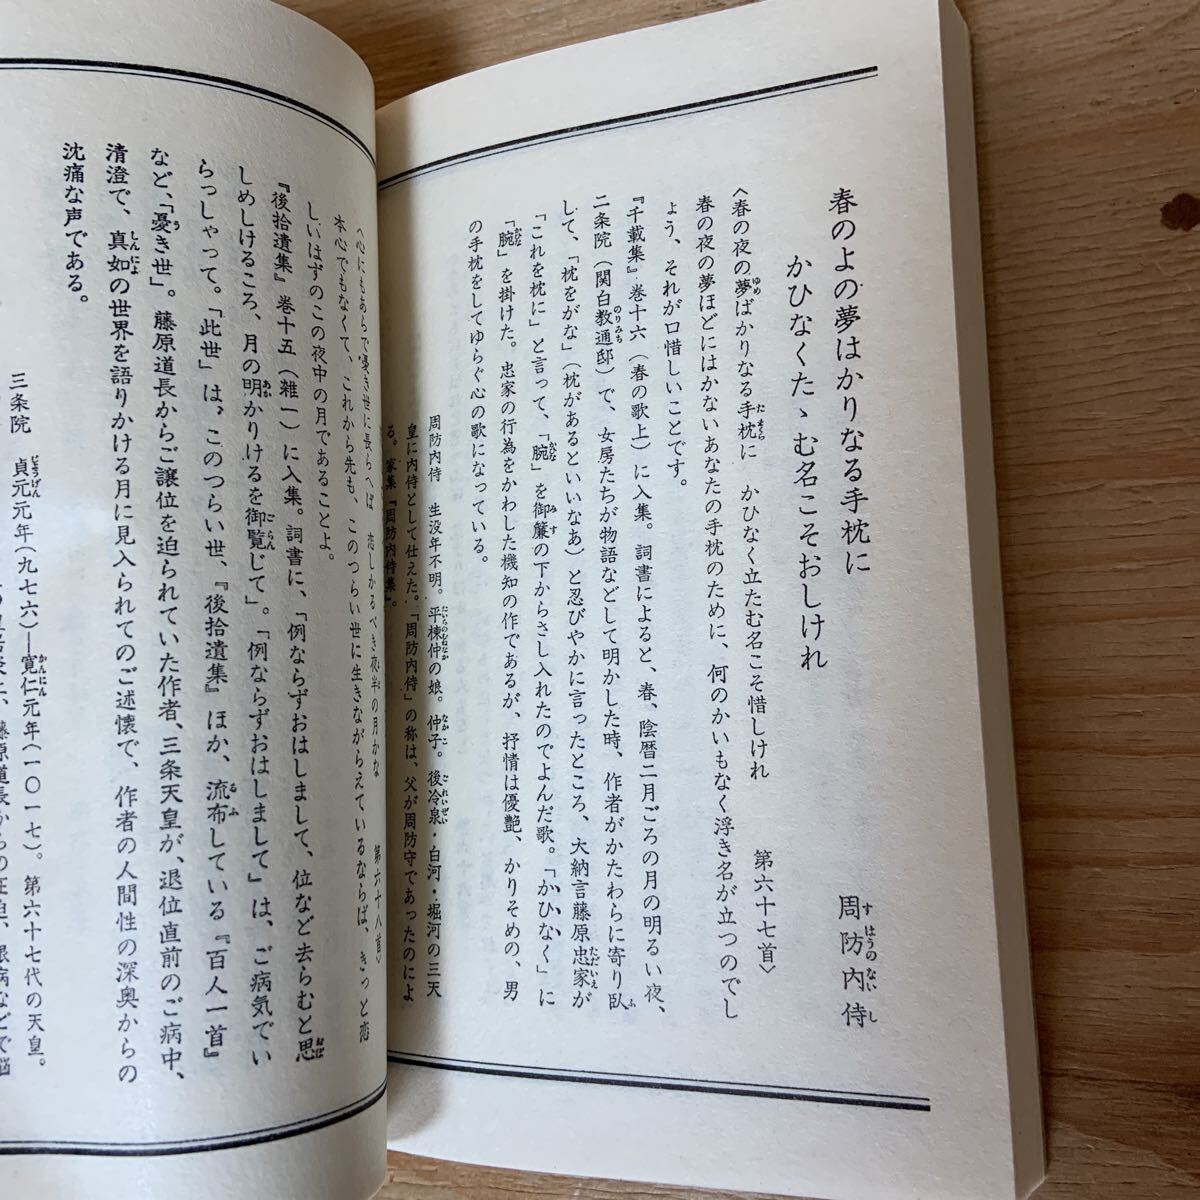 春のよの夢はかりなる手枕に
かひなくたゝむ名こそおしけれ
周防内侍
〈春の夜の夢ばかりなる手枕に　かひなく立たむ名こそ惜しけれ　第六十七首〉
春の夜の夢ほどにはかないあなたの手枕のために、何のかいもなく浮き名が立つのでし
ょう、それが口惜しいことです。
『千載集』巻十六（春の歌上）に入集。詞書によると、春、陰暦二月ごろの月の明るい夜、
二条院（関白教通邸）で、女房たちが物語などして明かした時、作者がかたわらに寄り臥
して、「枕をがな」（枕があるといいなあ）と忍びやかに言ったところ、大納言藤原忠家が
「これを枕に」と言って、「腕」を御簾の下からさし入れたのでよんだ歌。「かひなく」に
「腕」を掛けた。忠家の行為をかわした機知の作であるが、抒情は優艶、かりそめの、男
の手枕をしてゆらぐ心の歌になっている。
周防内侍　生没年不明。平棟仲の娘。仲子。後冷泉・白河・堀河の三天
皇に内侍として仕えた。「周防内侍」の称は、父が周防守であったのによ
る。家集『周防内侍集』。
〈心にもあらで憂き世に長らへば　恋しかるべき夜半の月かな　第六十八首〉
本心でもなくて、これから先も、このつらい世に生きながらえているならば、きっと恋
しいはずのこの夜中の月であることよ。
『後拾遺集』巻十五（雑一）に入集。詞書に、「例ならずおはしまして、位など去らむと思
しめしけるころ、月の明かりけるを御覧じて」。「例ならずおはしまして」は、ご病気でい
らっしゃって。「此世」は、このつらい世、『後拾遺集』ほか、流布している『百人一首』
など、「憂き世」。藤原道長からご譲位を迫られていた作者、三条天皇が、退位直前のご病中、
清澄で、真如の世界を語りかける月に見入られてのご述懐で、作者の人間性の深奥からの
沈痛な声である。
三条院　貞元元年（九七六）―寛仁元年（一〇一七）。第六十七代の天皇。
藤原道長からの圧迫、眼病などで悩